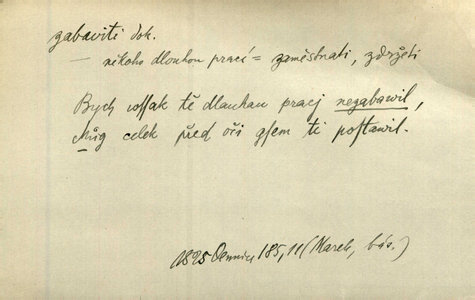 zabaviti dok.
— někoho dlouhou prací = zaměstnati, zdržeti
Bych wssak tě dlauhau pracj nezabawil,
Můg celek před oči gsem ti postawil.
1825 Dennice 185, 11 (Marek, bás.)